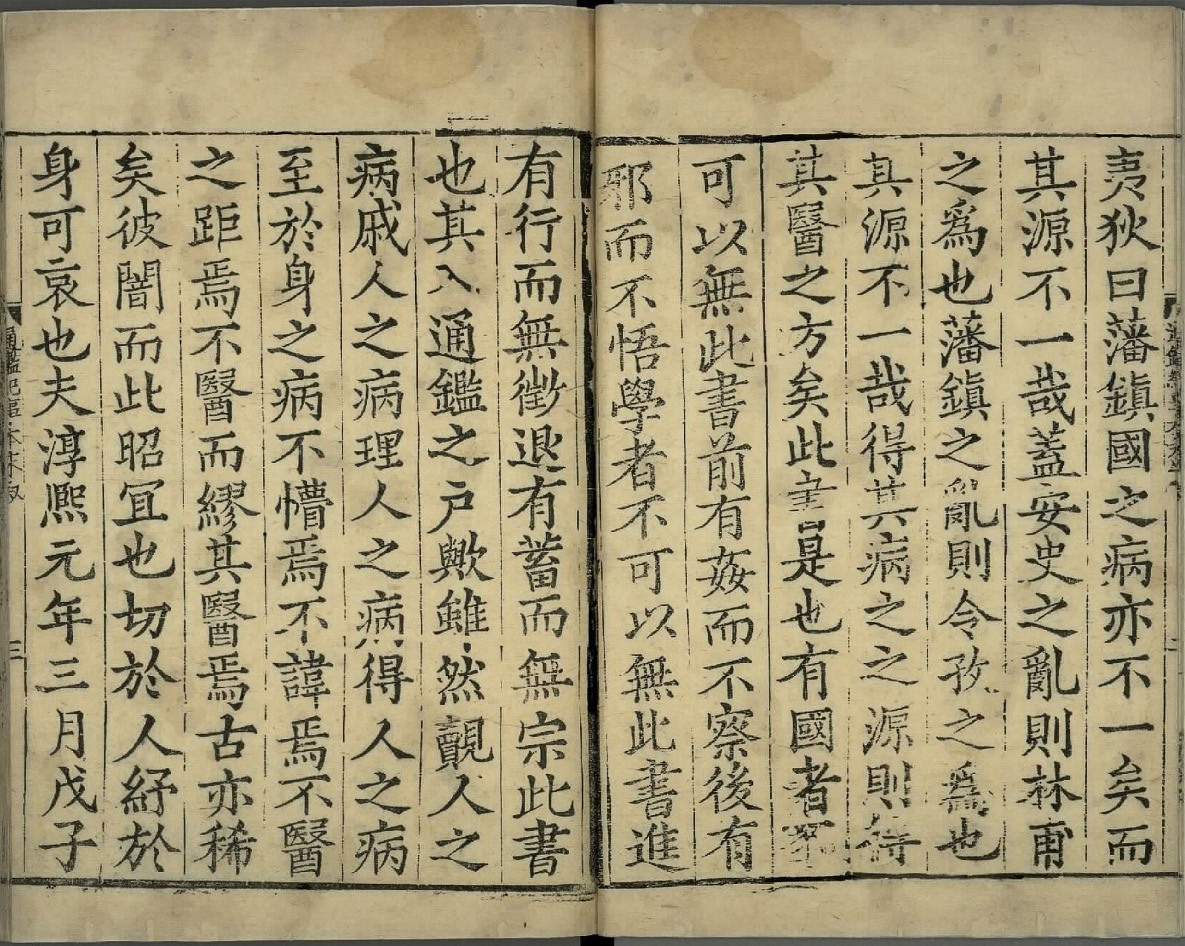 夷狄曰藩鎮國之病亦不一矣而
其源不一哉蓋安史之亂則林甫
之爲也藩鎮之亂則令孜之爲也
其源不一哉得其病之之源則得
其醫之方矣此書是也有國者不
可以無此書前有姦而不察後有
邪而不悟學者不可以無此書進
有行而無徵退有蓄而無宗此書
也其入通鑑之戶歟雖然覿人之
病戚人之病理人之病得人之病
至於身之病不懵焉不諱焉不醫
之距焉不醫而繆其醫焉古亦稀
矣彼闇而此昭宜也切於人紓於
身可哀也夫淳熈元年三月戊子
通鑑紀事本末叙
三